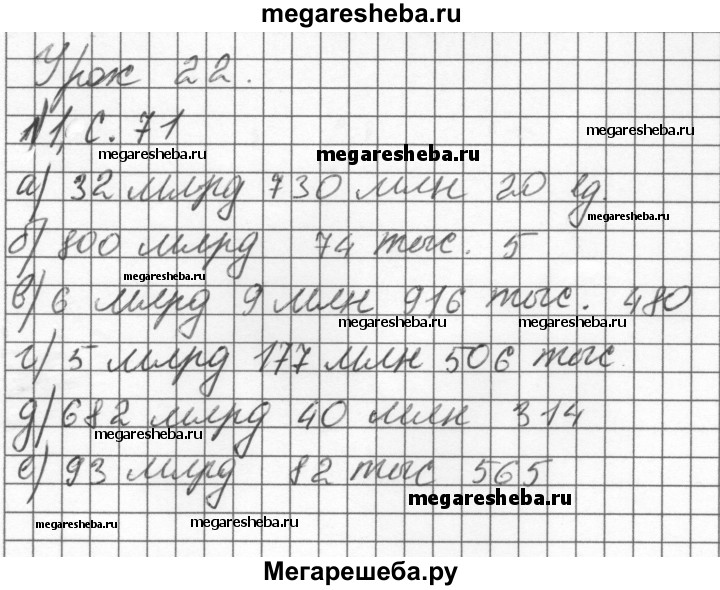 megaresheba.ru
Урок 22.
№1, с. 71
megaresheba.ru
megaresheba.ru
megaresheba.ru
а) 32 млрд 730 млн 20 ед.
megaresheba.ru
б) 800 млрд 74 тыс. 5
megaresheba.ru
в) 6 млрд 9 млн 916 тыс. 480
megaresheba.ru
megaresheba.ru
г) 5 млрд 177 млн 506 тыс.
д) 682 млрд 40 млн 314
megaresheba.ru
е) 93 млрд 82 тыс 565
megaresheba.ru
megaresheba.ru
megaresheba.ru
Мегарешеба.ру